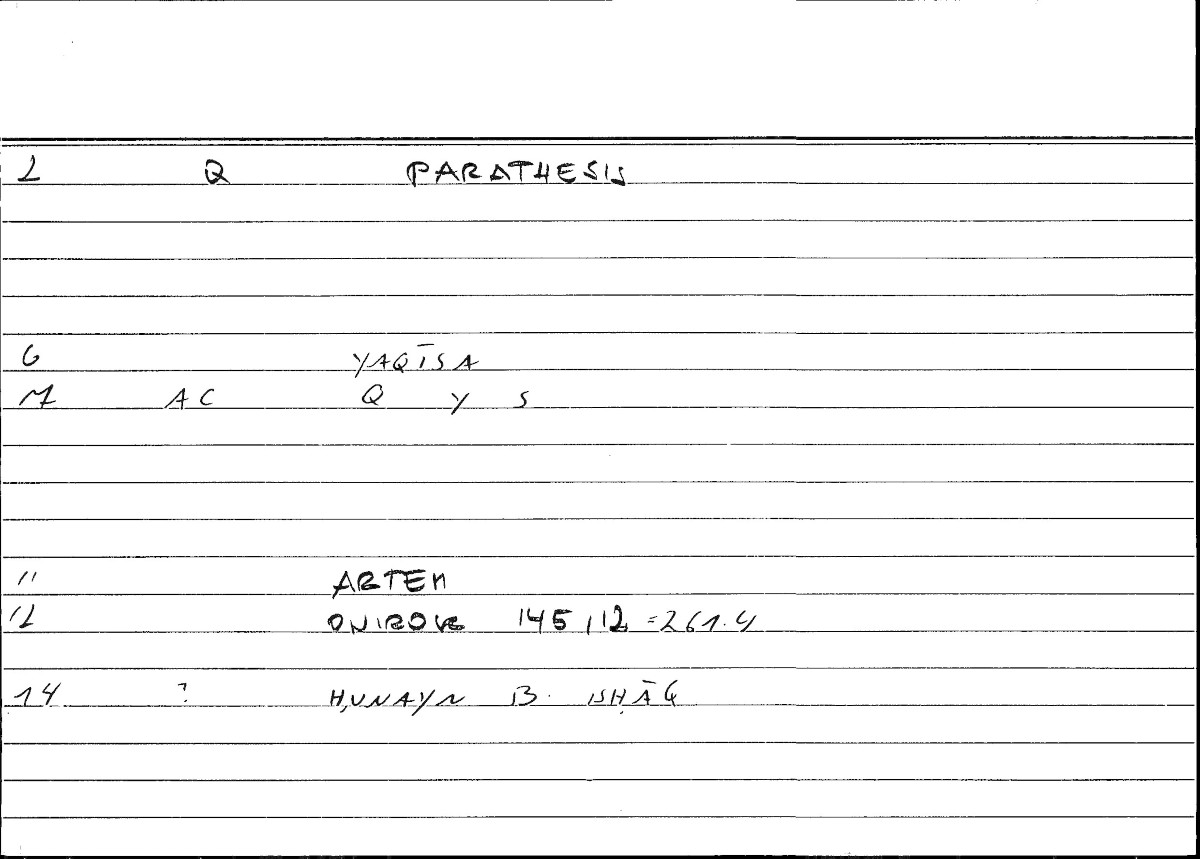 2 Q PARATHESIS
6 YAQĪSA
7 AC Q Y S
11 ARTEM
12 ONIROKR 145,12 =261.4
14 ? ḤUNAYN B. ISḤĀQ